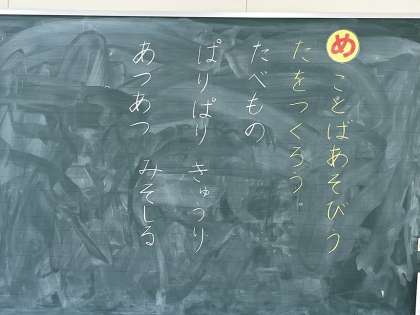 め ことばあそびう
たをつくろう。
たべもの
ぱりぱり きゅうり
あつあつ みそしる